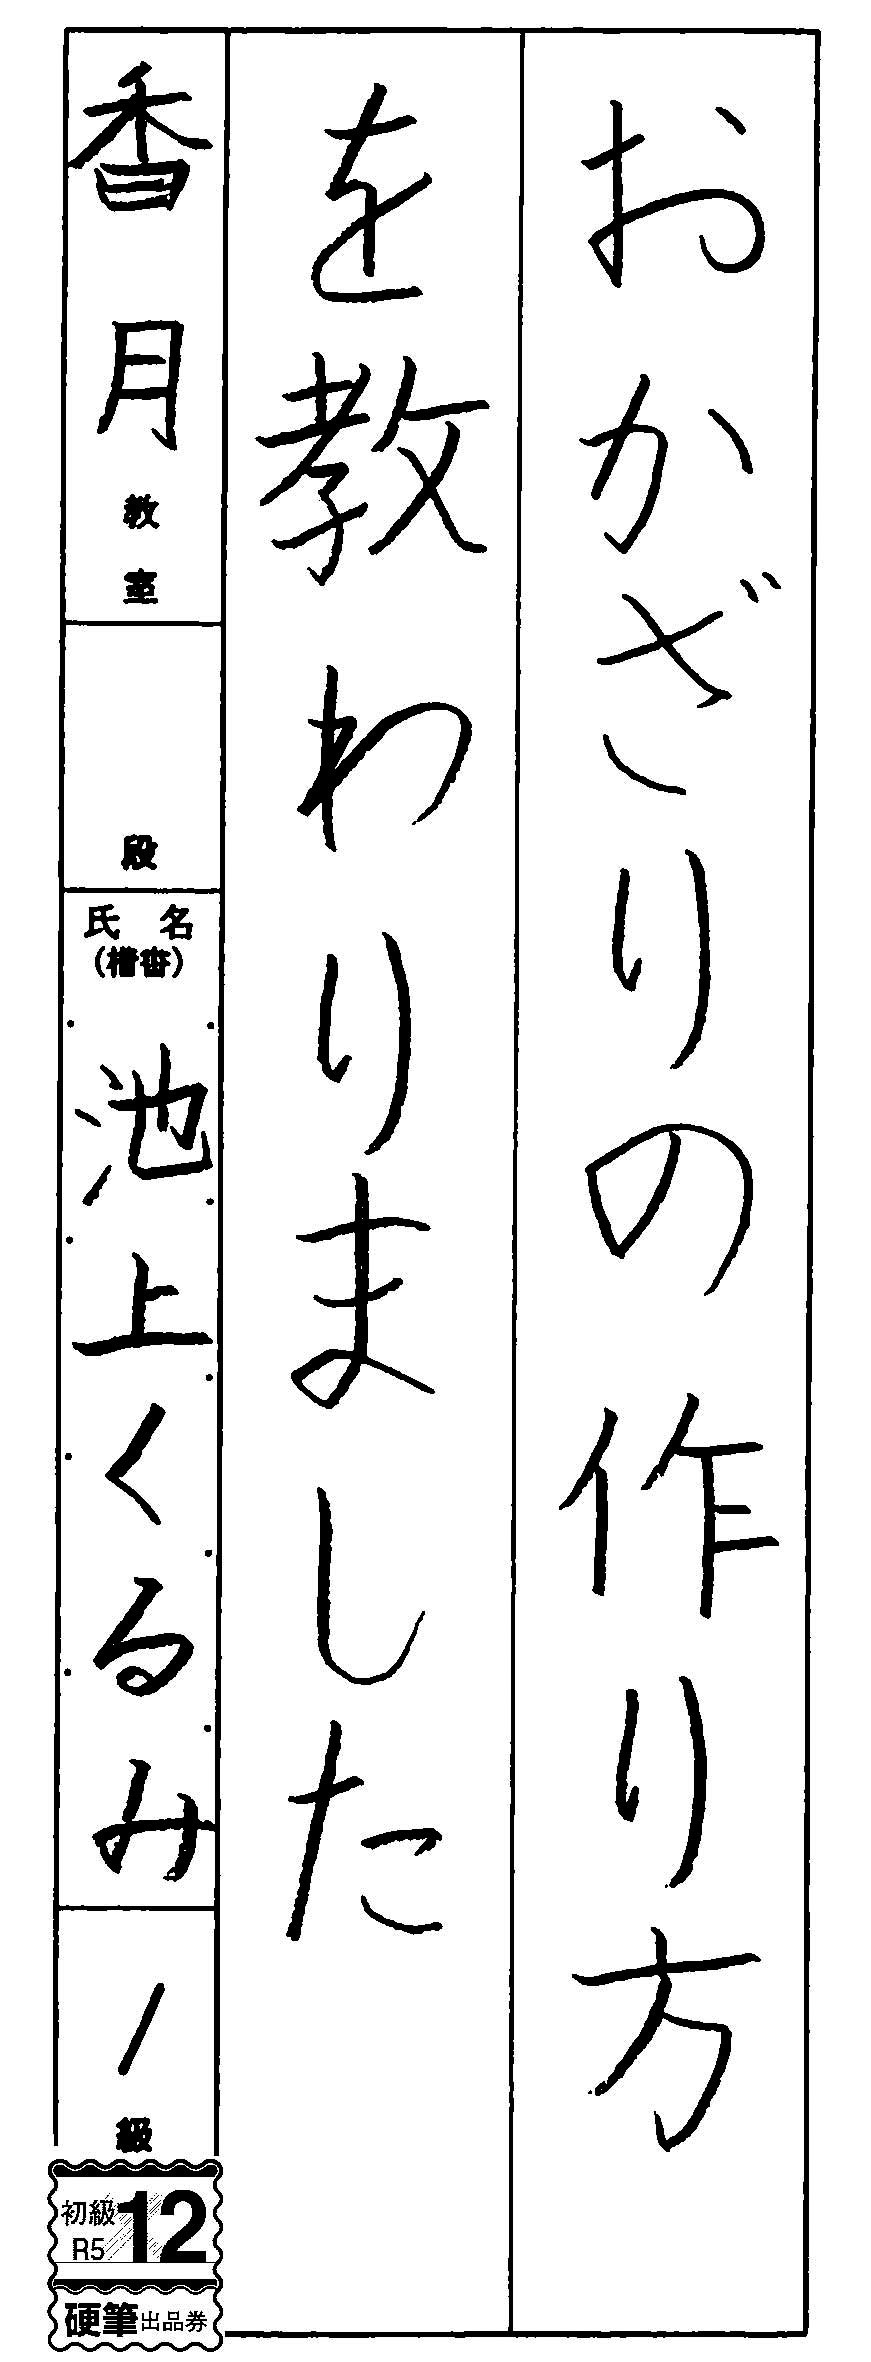 おかざりの作り方
を教わりました
香月教室
段
氏名
(楷書)
池上くるみ
1級
初級
R5
12
硬筆出品券